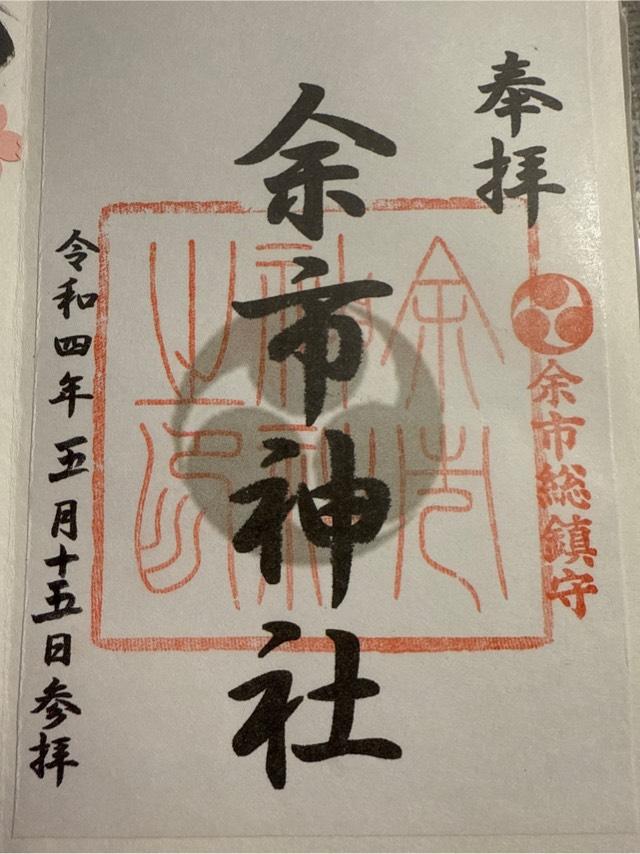 奉拝
余市総鎮守
余市神社
余市神社之印
令和四年五月十五日参拝